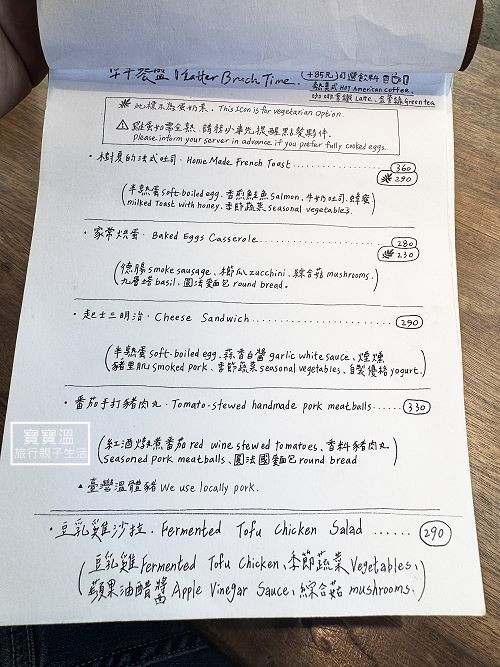 早午餐盤 Platter Brunch Time. (+85元)可選飲料
熱美式 HOT American coffee.
咖啡拿鐵 Latte、金萱綠 Green tea
此標示為蛋奶素. This Icon is for vegetarian option.
雞蛋如需全熟,請務必事先提醒點餐夥伴.
please inform your server in advance if you prefer fully cooked eggs.
・樹夏的法式吐司・Home Made French Toast 360
290
(半熟蛋 soft-boiled egg、香煎鮭魚 Salmon、牛奶吐司、蜂蜜
milked Toast with honey、季節蔬菜 seasonal vegetables.)
・家常烘蛋・Baked Eggs Casserole 280
230
(德腸 smoke sausage、櫛瓜 zucchini、綜合菇 mushrooms、
九層塔 basil、圓法麵包 round bread。)
・起士三明治・Cheese Sandwich 290
(半熟蛋 soft-boiled egg、蒜香白醬 garlic white sauce、煙燻
豬里肌 smoked pork、季節蔬菜 seasonal vegetables、自製優格 yogurt.)
・番茄手打豬肉丸・Tomato-stewed handmade pork meatballs 330
(紅酒燉煮番茄 red wine stewed tomatoes、香料豬肉丸
seasoned pork meatballs、圓法國麵包 round bread)
▲臺灣溫體豬 We use locally pork.
・豆乳雞沙拉・Fermented Tofu Chicken Salad ...... 290
(豆乳雞 Fermented Tofu Chicken、季節蔬菜 Vegetables、
蘋果油醋醬 Apple Vinegar Sauce、綜合菇 mushrooms.)
寶寶溫
旅行親子生活